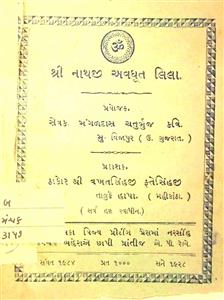 ૐ
શ્રી નાથજી અવધૂત લિલા.
પ્રયોજક.
સેવક મંગળદાસ ચતુર્ભુજ કવિ.
મુ. વિજાપુર ( ઉ. ગુજરાત. )
પ્રકાશક.
ઠાકોર શ્રી વખતસિંહજી ફતેસિંહજી
તાલુકે હાપા. ( મહીકાંઠા. )
( સર્વ હક્ક સ્વાધીન. )
વિજય પ્રીન્ટીંગ પ્રેસમાં નરસીંહ
છાપી પ્રાંતીજ એ. પી. રેલ્વે.
સંવત ૧૯૮૪ પ્રત ૧૦૦૦ સને ૧૯૨૮